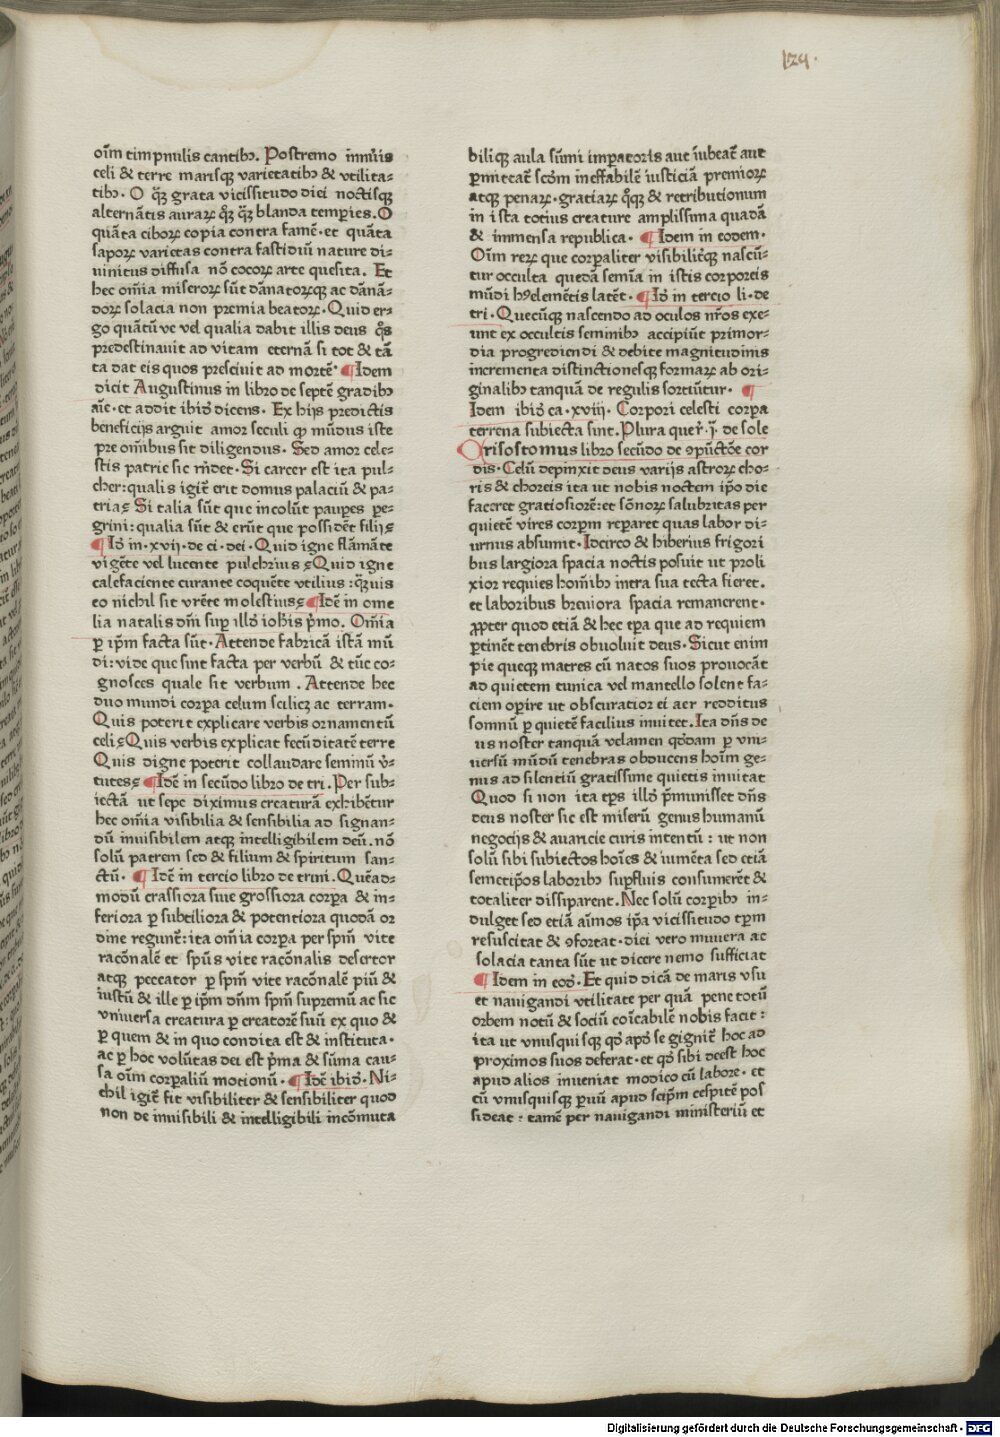 129.
oīm timpnulis cantibꝫ. Postremo īnnūis
celi & terre marisqꝫ varietatibꝫ & vtilita-
tibꝫ. O q̄ꝫ grata vicissitudo diei noctisqꝫ
alternātis auraꝝ q̄ꝫ q̄ꝫ blanda temp̄ies. O
quāta ciboꝝ copia contra famē. et quāta
sapoꝝ varietas contra fastidiū nature di-
uinitus diffusa nō cocoꝝ arte quesita. Et
hec om̄ia miseroꝝ sūt dānatoꝝqꝫ ac dānā-
doꝝ solacia non premia beatoꝝ. Quid er-
go quātū ve vel qualia dabit illis deus q̄s
predestinauit ad vitam eternā si tot & tā
ta dat eis quos presciuit ad mortē. ¶ Idem
dicit Augustinus in libro de septē gradibꝫ
aīe. et addit ibidē dicens. Ex hijs predictis
beneficijs arguit amor seculi ꝙ mūdus iste
pre om̄ibus sit diligendus. Sed amor cele-
stis patrie sic rn̄det. Si carcer est ita pul-
cher: qualis igit̄ erit domus palaciū & pa-
tria? Si talia sūt que incolūt paupes pe-
grini: qualia sūt & erūt que possidēt filij?
¶ Idē in .xvij. de ci. dei. Quid igne flāmāte
vigēte vel lucente pulchrius? Quid igne
calefaciente curante coquēte vtilius: q̄ꝫuis
eo nichil sit vrēte molestius? ¶ Idē in ome
lia natalis dn̄i sup illo iohīs p̄mo. Om̄ia
ꝑ ip̄m facta sūt. Attende fabricā istā mū
di: vide que sint facta per verbū & tūc co-
gnosces quale sit verbum. Attende hec
duo mundi corꝑa celum sciliꝫ ac terram.
Quis poterit explicare verbis ornamentū
celi? Quis verbis explicat fecūditatē terre
Quis digne poterit collaudare seminū v̓-
tutes? ¶ Idē in secūdo libro de tri. Per sub-
iectā ut sepe diximus creaturā exhibētur
hec om̄ia visibilia & sensibilia ad signan-
dū inuisibilem atqꝫ intelligibilem deū. nō
solū patrem sed & filium & spiritum san-
ctū. ¶ Idē in tercio libro de trini. Quēad-
modū crassiora siue grossiora corꝑa & in-
feriora ꝑ subtiliora & potentiora quodā or
dine regunt̄: ita om̄ia corꝑa per sp̄m vite
racōnalē et sp̄us vite racōnalis desertor
atqꝫ peccator ꝑ sp̄m vite racōnalē piū &
iustū & ille ꝑ ip̄m dn̄m sp̄m supremū ac sic
vniuersa creatura ꝑ creatorē suū ex quo &
ꝑ quem & in quo condita est & instituta.
ac ꝑ hoc volūtas dei est p̄ma & sūma cau-
sa oīm corꝑaliū mocionū. ¶ Idē ibidē. Ni-
chil igit̄ fit visibiliter & sensibiliter quod
non de inuisibili & intelligibili incōmuta
biliqꝫ aula sūmi imꝑatoris aut iubeat̄ aut
ꝑmiteat̄ scdm̄ ineffabilē iusticiā premioꝝ
atqꝫ penaꝝ. gratiaꝝ q̄qꝫ & retributionum
in ista totius creature amplissima quadā
& immensa republica. ¶ Idem in eodem.
Oīm reꝝ que corꝑaliter visibiliterqꝫ nascū-
tur occulta quedā semīa in istis corporeis
mūdi hꝰ elemētis latēt. ¶ Idē in tercio li. de
tri. Quecūqꝫ nascendo ad oculos nr̄os exe-
unt ex occultis seminibꝫ accipiūt primor-
dia progrediendi & debite magnitudinis
incrementa distinctionesqꝫ formaꝝ ab ori-
ginalibꝫ tanquā de regulis sortiūtur. ¶
Idem ibidē ca. xviij. Corpori celesti corꝑa
terrena subiecta sint. Plura quer̄. j̄. de sole
Crisostomus libro secūdo de ꝯpūctōe cor
dis. Celū depinxit deus varijs astroꝝ cho-
ris & choreis ita ut nobis noctem ip̄o die
faceret gratiosiorē: et sōnoꝝ salubritas per
quietē vires corꝑum reꝑaret quas labor di-
urnus absumit. Idcirco & hiberius frigori
bus largiora spacia noctis posuit ut proli
xior requies homībꝫ intra sua tecta fieret.
et laboribus breuiora spacia remanerent.
ꝓpter quod etiā & hec tꝑa que ad requiem
ꝑtinēt tenebris obuoluit deus. Sicut enim
pie queqꝫ matres cū natos suos prouocāt
ad quietem tunica vel mantello solent fa-
ciem oꝑire ut obscuratior ei aer redditus
somnū ꝑ quietē facilius inuitet. Ita dn̄s de
us noster tanquā velamen qd̄dam ꝑ vni-
uersū mūdū tenebras obducens hoīm ge-
nus ad silentiū gratissime quietis inuitat
Quod si non ita tꝑs illd̄ p̄munisset dn̄s
deus noster sic est miserū genus humanū
negocijs & auaricie curis intentū: ut non
solū sibi subiectos hoīes & iumēta sed etiā
semetip̄os laboribꝫ suꝑfluis consumerēt &
totaliter dissiparent. Nec solū corꝑibꝫ in-
dulget sed etiā aīmos ip̄a vicissitudo tꝑm
resuscitat & ꝯfortat. diei vero munera ac
solacia tanta sūt ut dicere nemo sufficiat
¶ Idem in eod̄. Et quid dicā de maris vsu
et nauigandi vtilitate per quā pene totū
orbem notū & sociū coīcabilē nobis facit:
ita ut vnusquisqꝫ qd̄ apd̄ se gignit̄ hoc ad
proximos suos deferat. et qd̄ sibi deest hoc
apud alios inueniat modico cū labore. et
cū vnusquisqꝫ ꝑuū apud seip̄m cespitē pos
sideat: tamē per nauigandi ministeriū et
Digitalisierung gefördert durch die Deutsche Forschungsgemeinschaft - DFG